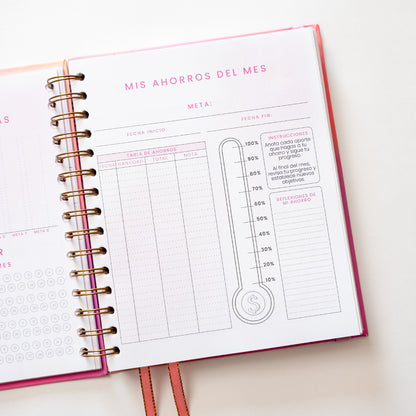 MIS AHORROS DEL MES
META:
FECHA INICIO:
FECHA FIN:
TABLA DE AHORROS
FECHA
TOTAL
NOTA
100%
90%
80%
70%
60%
50%
40%
30%
20%
10%
$
INSTRUCCIONES
Anota cada aporte
que hagas a tu
ahorro y sigue tu
progreso
Al final del mes,
revisa tu progreso y
establece nuevos
objetivos.
REFLEXIONES DE
MI AHORRO
AS
META 7
META 8
R
MES